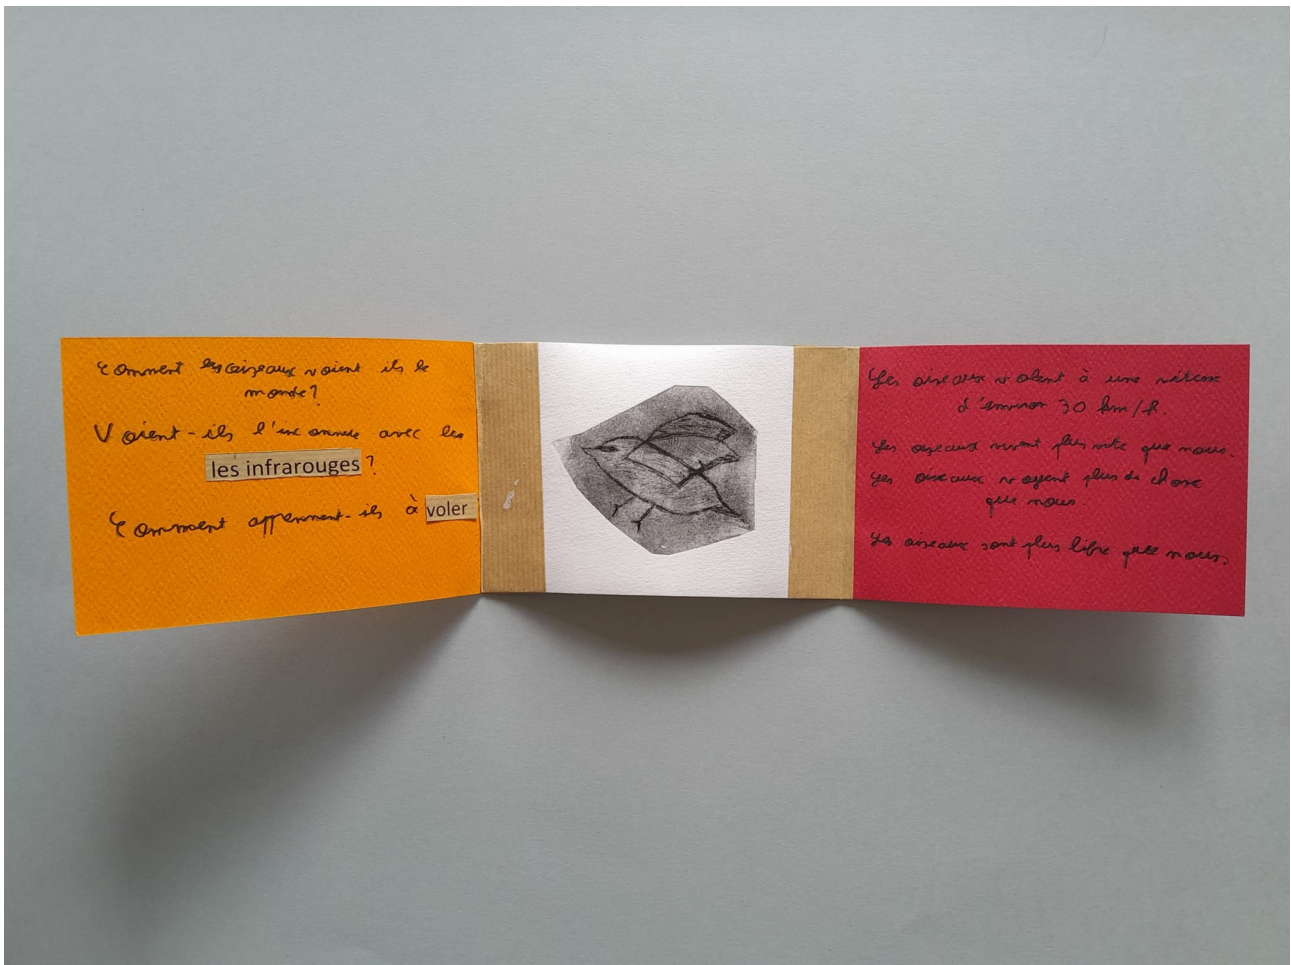 Comment les oiseaux voient ils le
monde?
Voient-ils l'invers avec les
les infrarouges ?
Comment apprennent-ils à voler
Les oiseaux volent à une vitesse
d'environ 30 km/h.
Les oiseaux vivent plus vite que nous.
Les oiseaux voyent plus de chose
que nous
Les oiseaux sont plus libre que nous.